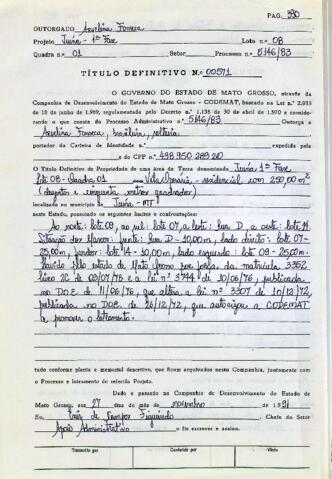 PAG. 330
OUTORGADO Aselina Fonseca
Projeto Juína - 1ª Fase Lote n.º 08
Quadra n.º 01 Setor Processo n.º 5146/83
TÍTULO DEFINITIVO N.º 00571
O GOVERNO DO ESTADO DE MATO GROSSO, através da
Companhia de Desenvolvimento do Estado de Mato Grosso - CODEMAT, baseado na Lei n.º 2.933
de 10 de junho de 1969, regulamentada pelo Decreto n.º 1.138 de 30 de abril de 1970 e considerando
o que consta do Processo Administrativo n.º 5146/83 Outorga a
Aselina Fonseca, brasileira, solteira
portador da Carteira de Identidade n.º expedido
e do CPF n.º 498 950 289 20
O Título Definitivo de Propriedade de uma área de Terra denominada Juína 1ª Fase
lote 08 - Quadra 01 residencial com 250,00 m²
(duzentos e cinquenta metros quadrados)
localizada no município de Juína - MT
neste Estado, possuindo os seguintes limites e confrontações:
Ao norte: lote 09, ao sul: lote 07, a leste: Rua D a oeste: lote 14.
Situação dos Marcos: frente: Rua D - 10,00 m, lado direito: lote 07 -
25,00 m, fundos: lote 14 - 10,00 m, lado esquerdo: lote 09 - 25,00 m.
Havido pelo estado de Mato Grosso por força da matrícula 3352,
livro 2C de 09/07/76 e a lei nº 3744 de 10/06/76, publicada
no D.O.E. de 11/06/76, que altera a lei nº 3307 de 10/12/72,
publicada no D.O.E. de 26/12/72, que autorizou a CODEMAT
a promover o loteamento.
tudo conforme planta e memorial descritivo, que ficam arquivados nesta Companhia, juntamente com
o Processo e loteamento do referido Projeto.
Dado e passado na Companhia de Desenvolvimento do Estado de
Mato Grosso, aos 27 dias do mês de novembro de 1991
Eu, Inês de Campos Figueiredo Chefe do Setor
Apoio Administrativo o fiz escrever e assino.
Transcrito por Conferido por Visto